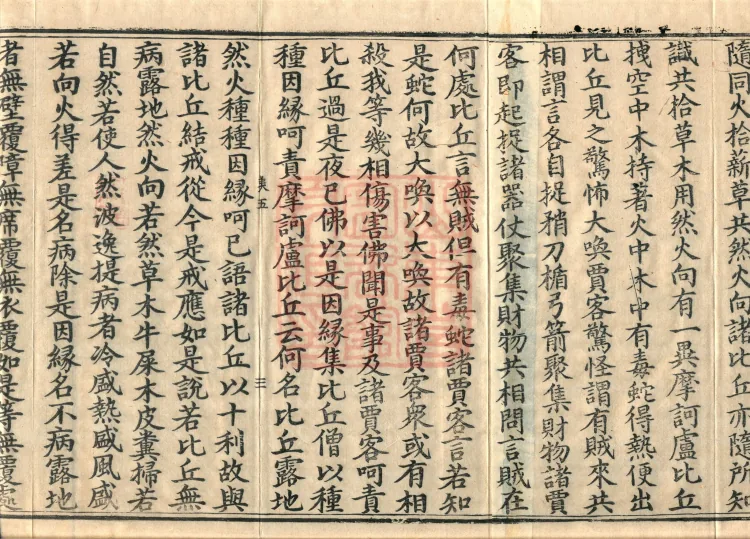 隨同火拾薪草共然火向諸比丘亦隨所知
識共拾草木用然火向有一異摩訶盧比丘
拽空中木持著火中木中有毒蛇得熱便出
比丘見之驚怖大喚賈客驚怪謂有賊來共
相謂言各自捉矟刀楯弓箭聚集財物諸賈
客即起捉諸器仗聚集財物共相問言賊在
何處比丘言無賊但有毒蛇諸賈客言若知
是蛇何故大喚以大喚故諸賈客衆或有相
殺我等幾相傷害佛聞是事及諸賈客呵責
比丘過是夜已佛以是因緣集比丘僧以種
夷五
三
種因緣呵責摩訶盧比丘云何名比丘露地
然火種種因緣呵已語諸比丘以十利故與
諸比丘結戒從今是戒應如是說若比丘無
病露地然火向若然草木牛屎木皮糞掃若
自然若使人然波逸提病者冷盛熱盛風盛
若向火得差是名病除是因緣名不病露地
者無壁覆障無席覆無衣覆如是等無覆處